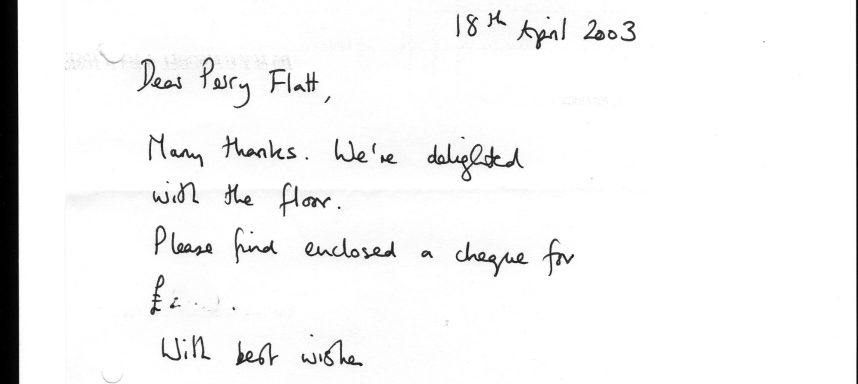 18th April 2003
Dear Perry Flatt,
Many thanks. We're delighted
with the floor.
Please find enclosed a cheque for
£2
With best wishes